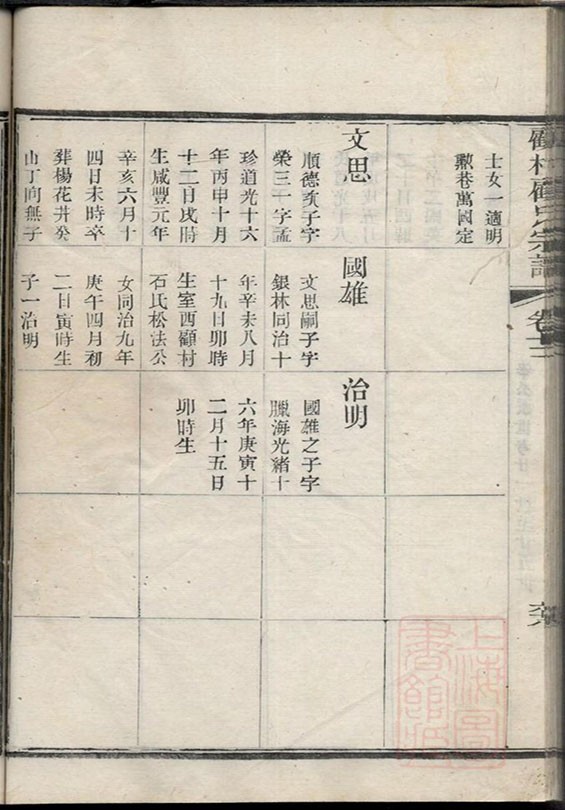 顧氏宗譜
卷
士女一適明
勲巷萬國定
文思
順德次子字
榮三一字孟
珍道光十六
年丙申十月
十二日戌時
生咸豐元年
辛亥六月十
四日未時卒
葬楊花井癸
山丁向無子
國雄
文思嗣子字
銀林同治十
年辛未八月
十九日卯時
生室西顧村
石氏松法公
女同治九年
庚午四月初
二日寅時生
子一治明
治明
國雄之子字
臘海光緒十
六年庚寅十
二月十五日
卯時生
上海圖
書館藏